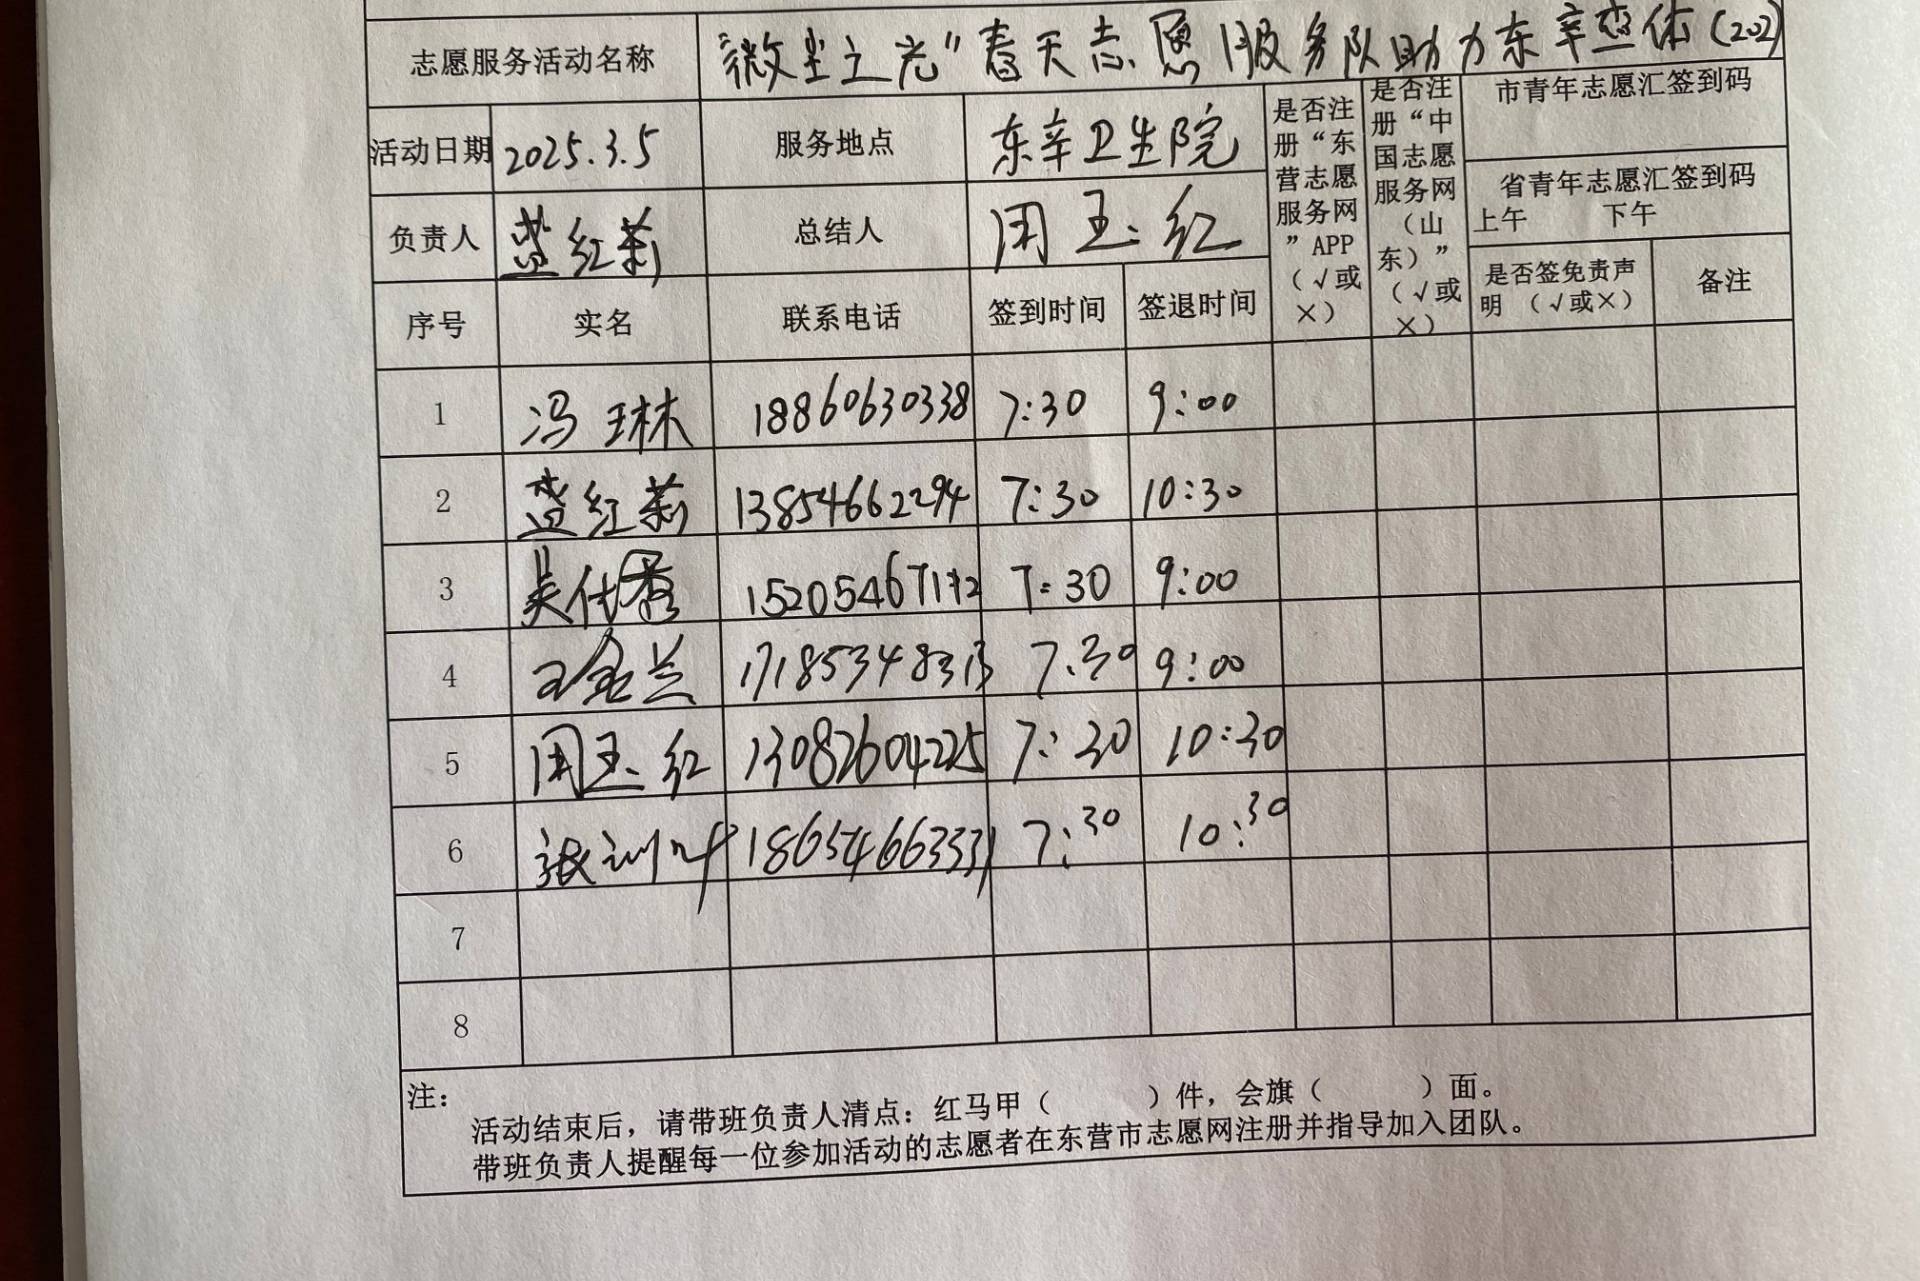 志愿服务活动名称 “微尘之光”春天志愿服务队助力东辛查体(202)
活动日期 2025.3.5 服务地点 东辛卫生院 是否注册“东营志愿服务网”APP（√或×） 是否注册“中国志愿服务网（山东）”（√或×） 市青年志愿汇签到码
省青年志愿汇签到码
上午 下午
负责人 蓝红莉 总结人 周玉红
序号 实名 联系电话 签到时间 签退时间 是否签免责声明（√或×） 备注
1 冯琳 18860630338 7:30 9:00
2 蓝红莉 13854662294 7:30 10:30
3 吴代秀 7:30 9:00
4 王金兰 17185348313 7:30 9:00
5 周玉红 13082604225 7:30 10:30
6 张训叶 7:30 10:30
7
8
注：
活动结束后，请带班负责人清点：红马甲（ ）件，会旗（ ）面。
带班负责人提醒每一位参加活动的志愿者在东营市志愿网注册并指导加入团队。